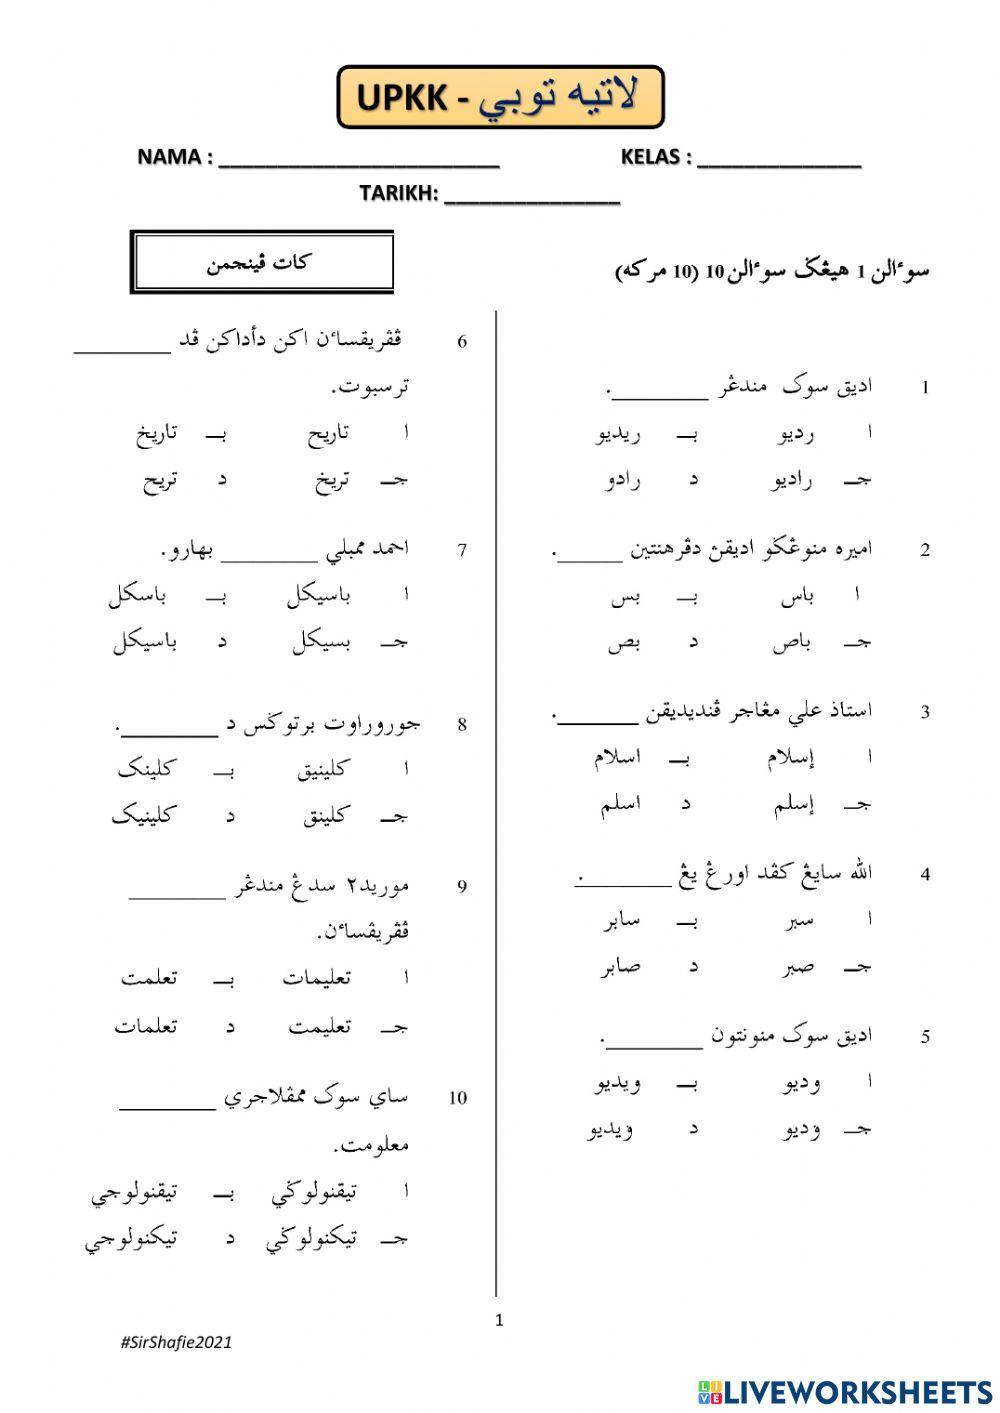 UPKK - لاتيه توبي
NAMA : ________________________ KELAS : ______________
TARIKH: _______________
كات ڤينجمن
سوءالن 1 هيڠݢ سوءالن 10 (10 مركه)
1 اديق سوک مندڠر _________.
ا رديو بـ ريديو
جـ راديو د رادو
2 اميره منوڠݢو اديقڽ دڤرهنتين ______.
ا باس بـ بس
جـ باص د بص
3 استاذ علي مڠاجر ڤنديديقن _______.
ا إسلام بـ اسلام
جـ إسلم د اسلم
4 الله سايڠ کڤد اورڠ يڠ _________.
ا سبر بـ سابر
جـ صبر د صابر
5 اديق سوک منونتون _________.
ا وديو بـ ويديو
جـ ۏديو د ۏيديو
6 ڤڤريقساءن اکن دأداکن ڤد _________
ترسبوت.
ا تاريح بـ تاريخ
جـ تريخ د تريح
7 احمد ممبلي _________ بهارو.
ا باسيكل بـ باسكل
جـ بسيكل د باسيكل
8 جوروراوت برتوݢس د _________.
ا كلينيق بـ كلينک
جـ كلينق د كلينيک
9 موريد٢ سدڠ مندڠر _________
ڤڤريقساءن.
ا تعليمات بـ تعلمت
جـ تعليمت د تعلمات
10 ساي سوک ممڤلاجري _________
معلومت.
ا تيقنولوݢي بـ تيقنولوجي
جـ تيكنولوݢي د تيكنولوجي
1
#SirShafie2021
LIVE LIVEWORKSHEETS